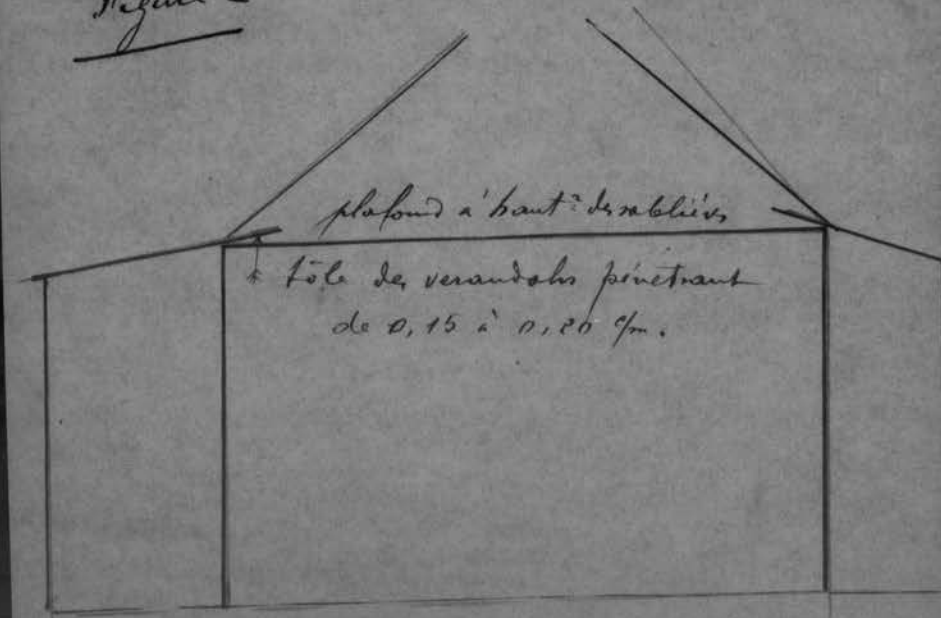 Figure 2
plafond à haut.r des sablières
tôle des verandahs pénétrant
de 0,15 à 0,20 c/m.